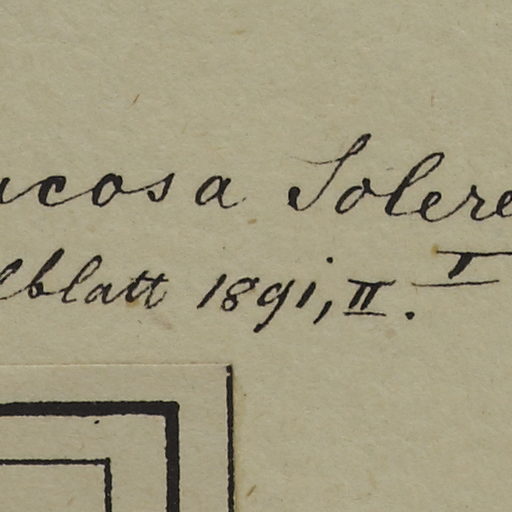 ucosa Solere
lblatt 1891, II. I